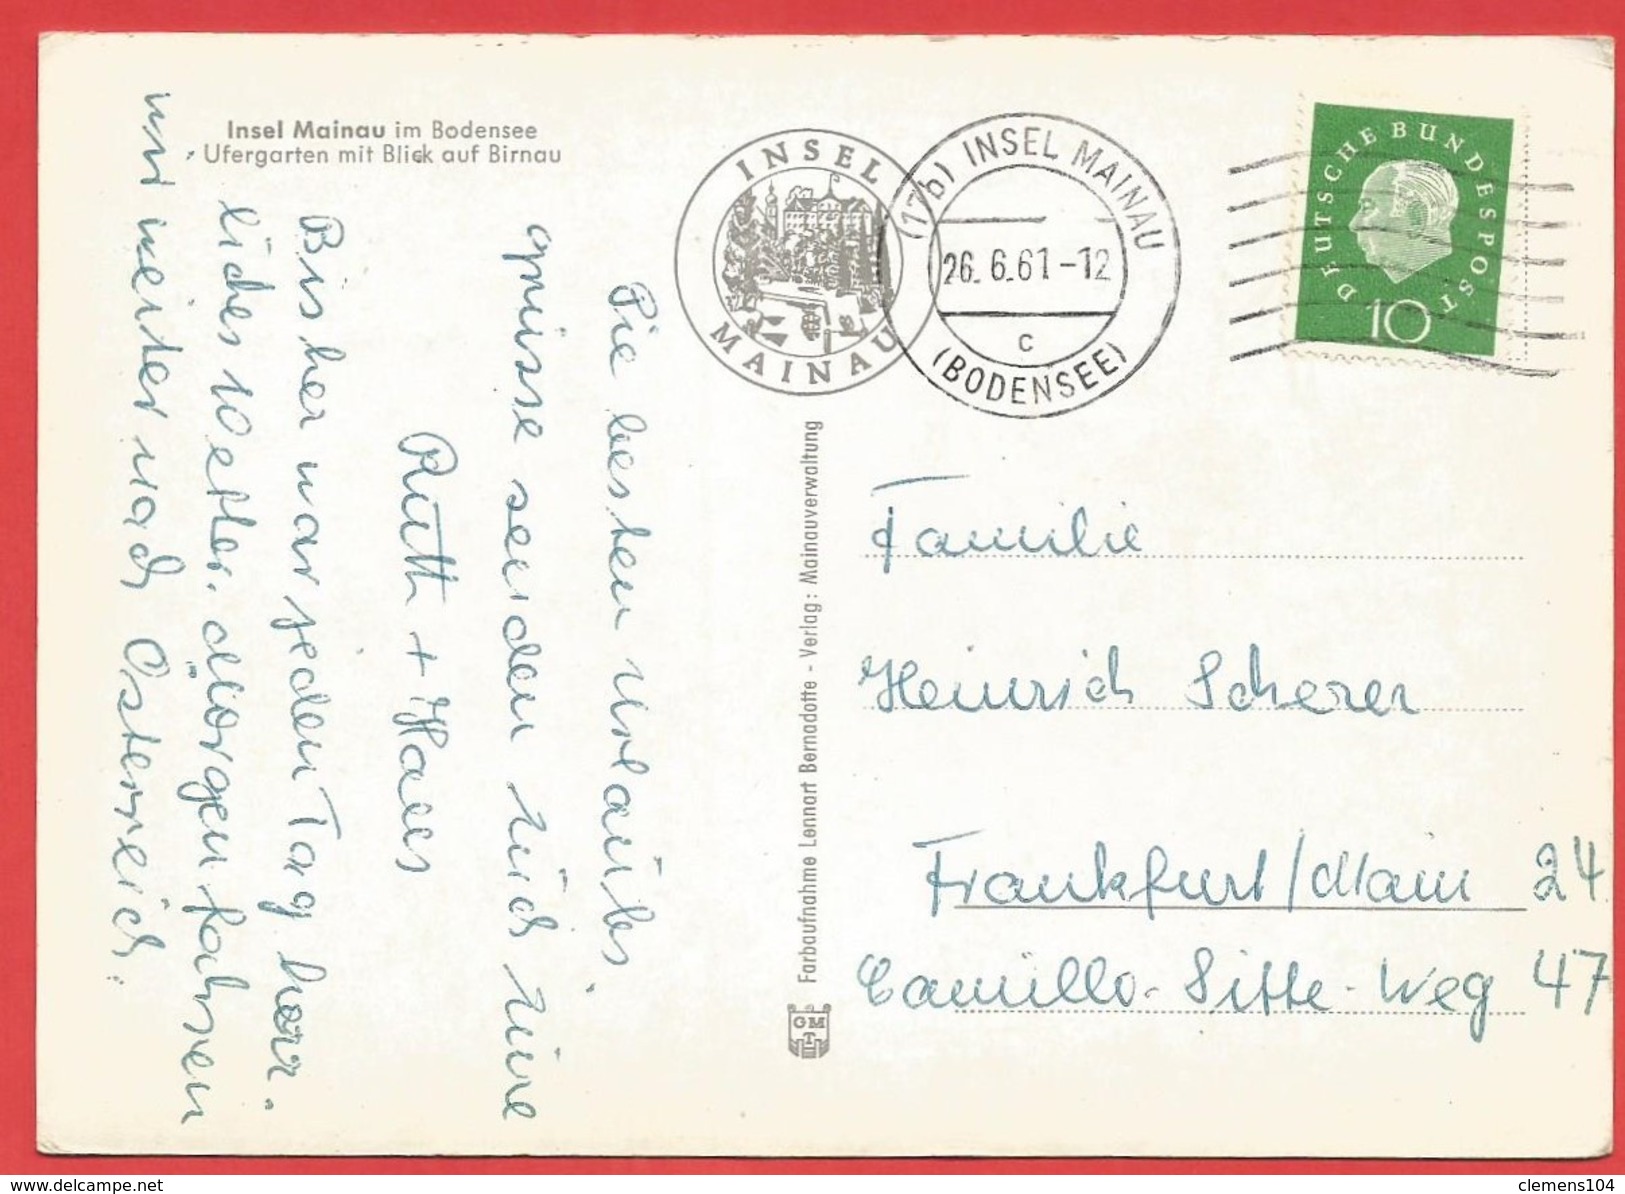 Insel Mainau im Bodensee
Ufergarten mit Blick auf Birnau
INSEL
MAINAU
(17b) INSEL MAINAU
26. 6.61-12
c
(BODENSEE)
DEUTSCHE BUNDESPOST
10
Die besten Urlaubs
grüsse senden
Ruth +
Bisher war jeden Tag herr.
liches Wetter. Morgen fahren
wir weiter nach Österreich.
Farbaufnahme Lennart Bernadotte - Verlag: Mainauverwaltung
GM
T
Familie
Heinrich Scherer
Frankfurt/Main 24
Camillo-Sitte-Weg 47
www.delcampe.net
clemens104